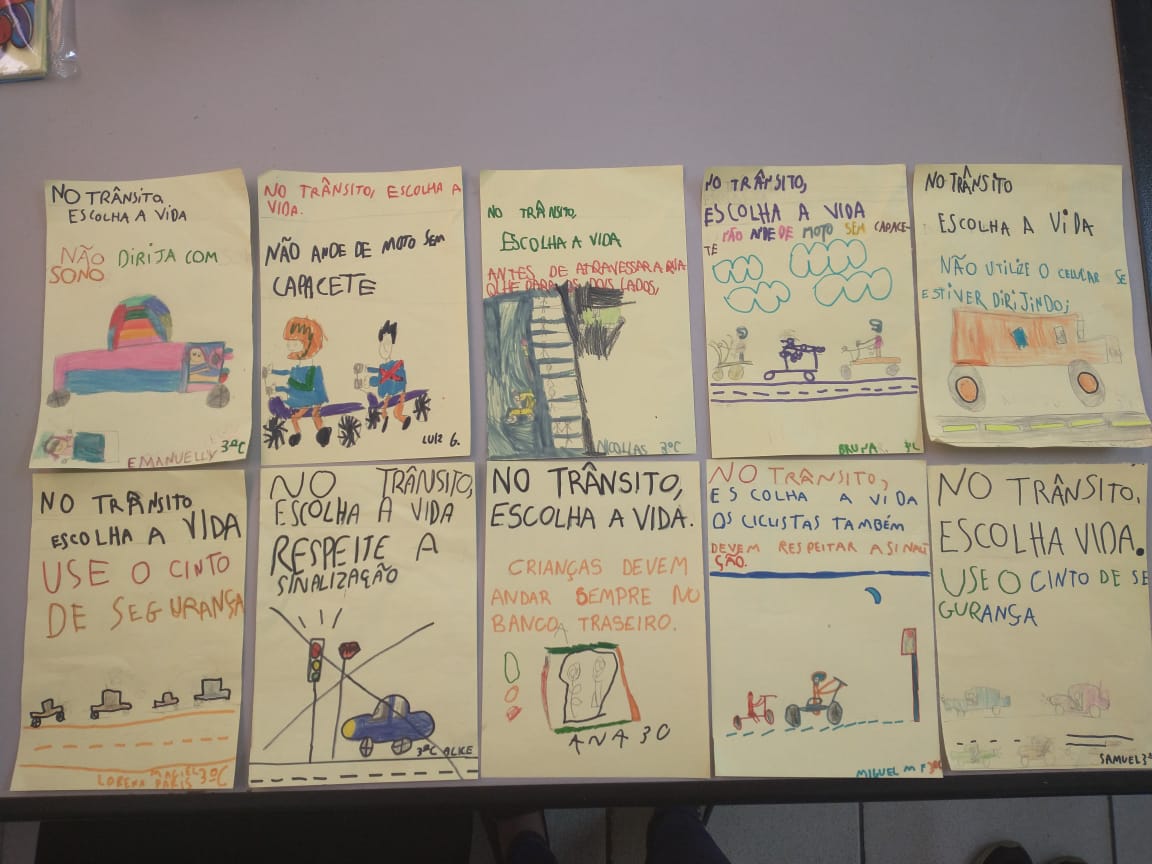 NO TRÂNSITO,
ESCOLHA A VIDA
NÃO DIRIJA COM
SONO
EMANUELLY 3ºC
NO TRÂNSITO, ESCOLHA A
VIDA.
NÃO ANDE DE MOTO SEM
CAPACETE
LUIZ G.
NO TRÂNSITO,
ESCOLHA A VIDA
ANTES DE ATRAVESSAR A RUA
OLHE PARA OS DOIS LADOS,
NICOLLAS 3ºC
NO TRÂNSITO,
ESCOLHA A VIDA
NÃO ANDE DE MOTO SEM CAPACE-
TE
BRUNA
NO TRÂNSITO
ESCOLHA A VIDA
NÃO UTILIZE O CELULAR SE
ESTIVER DIRIJINDO;
NO TRÂNSITO
ESCOLHA A VIDA
USE O CINTO
DE SEGURANÇA
LORENA 3ºC
NO TRÂNSITO,
ESCOLHA A VIDA
RESPEITE A
SINALIZAÇÃO
3ºC ALICE
NO TRÂNSITO,
ESCOLHA A VIDA.
CRIANÇAS DEVEM
ANDAR SEMPRE NO
BANCO TRASEIRO.
ANA 3C
NO TRÂNSITO,
ESCOLHA A VIDA
OS CICLISTAS TAMBÉM
DEVEM RESPEITAR A SINALI
ZAÇÃO.
MIGUEL M F 3ºC
NO TRÂNSITO,
ESCOLHA VIDA.
USE O CINTO DE SE
GURANÇA
SAMUEL 3º